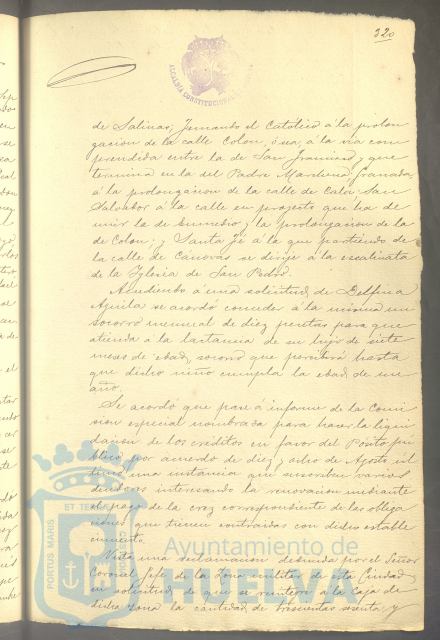 320
ALCALDIA CONSTITUCIONAL
de Salinas; Fernando el Católico á la prolon
gacion de la calle Colon, ó sea, á la via com
prendida entre la de San Francisco y que
termina en la del Padre Marchena; Granada,
á la prolongacion de la calle de Colon; San
Salvador á la calle en proyecto que ha de
unir la de y la prolongacion de la
de Colon; y Santa Fé á la que partiendo de
la calle de Cánovas se dirije á la escalinata
de la Iglesia de San Pedro.
Accediendo á una solicitud de Delfina
Aguila se acordó conceder á la misma un
socorro mensual de diez pesetas para que
atienda á la lactancia de su hijo de siete
meses de edad, socorro que percibirá hasta
que dicho niño cumpla la edad de un
año.
Se acordó que pase á informe de la Comi
sion especial nombrada para hacer la liqui
dacion de los créditos en favor del Pósito pú
blico por acuerdo de diez y ocho de Agosto úl
timo una instancia que suscriben varios
deudores interesando la renovacion mediante
el pago de la crez correspondiente de las obliga
ciones que tienen contraidas con dicho estable
cimiento.
Vista una reclamacion deducida por el Señor
Coronel Jefe de la Zona militar de esta Ciudad
en solicitud de que se reintegre á la Caja de
dicha zona la cantidad de trescientas sesenta y
PORTUS MARIS ET TERRAE CUSTODIA
Ayuntamiento de
HUELVA